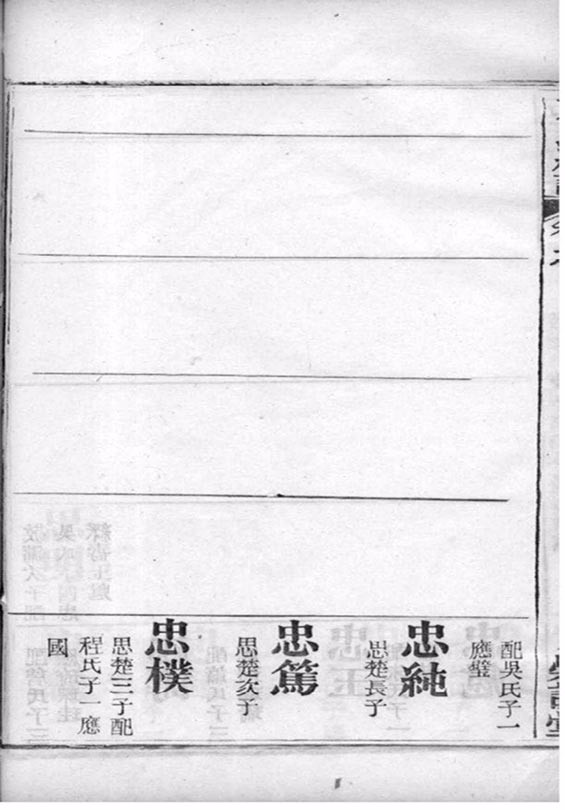 配吳氏子一
應璧
忠純
思楚長子
忠篤
思楚次子
忠樸
思楚三子配
程氏子一應
國